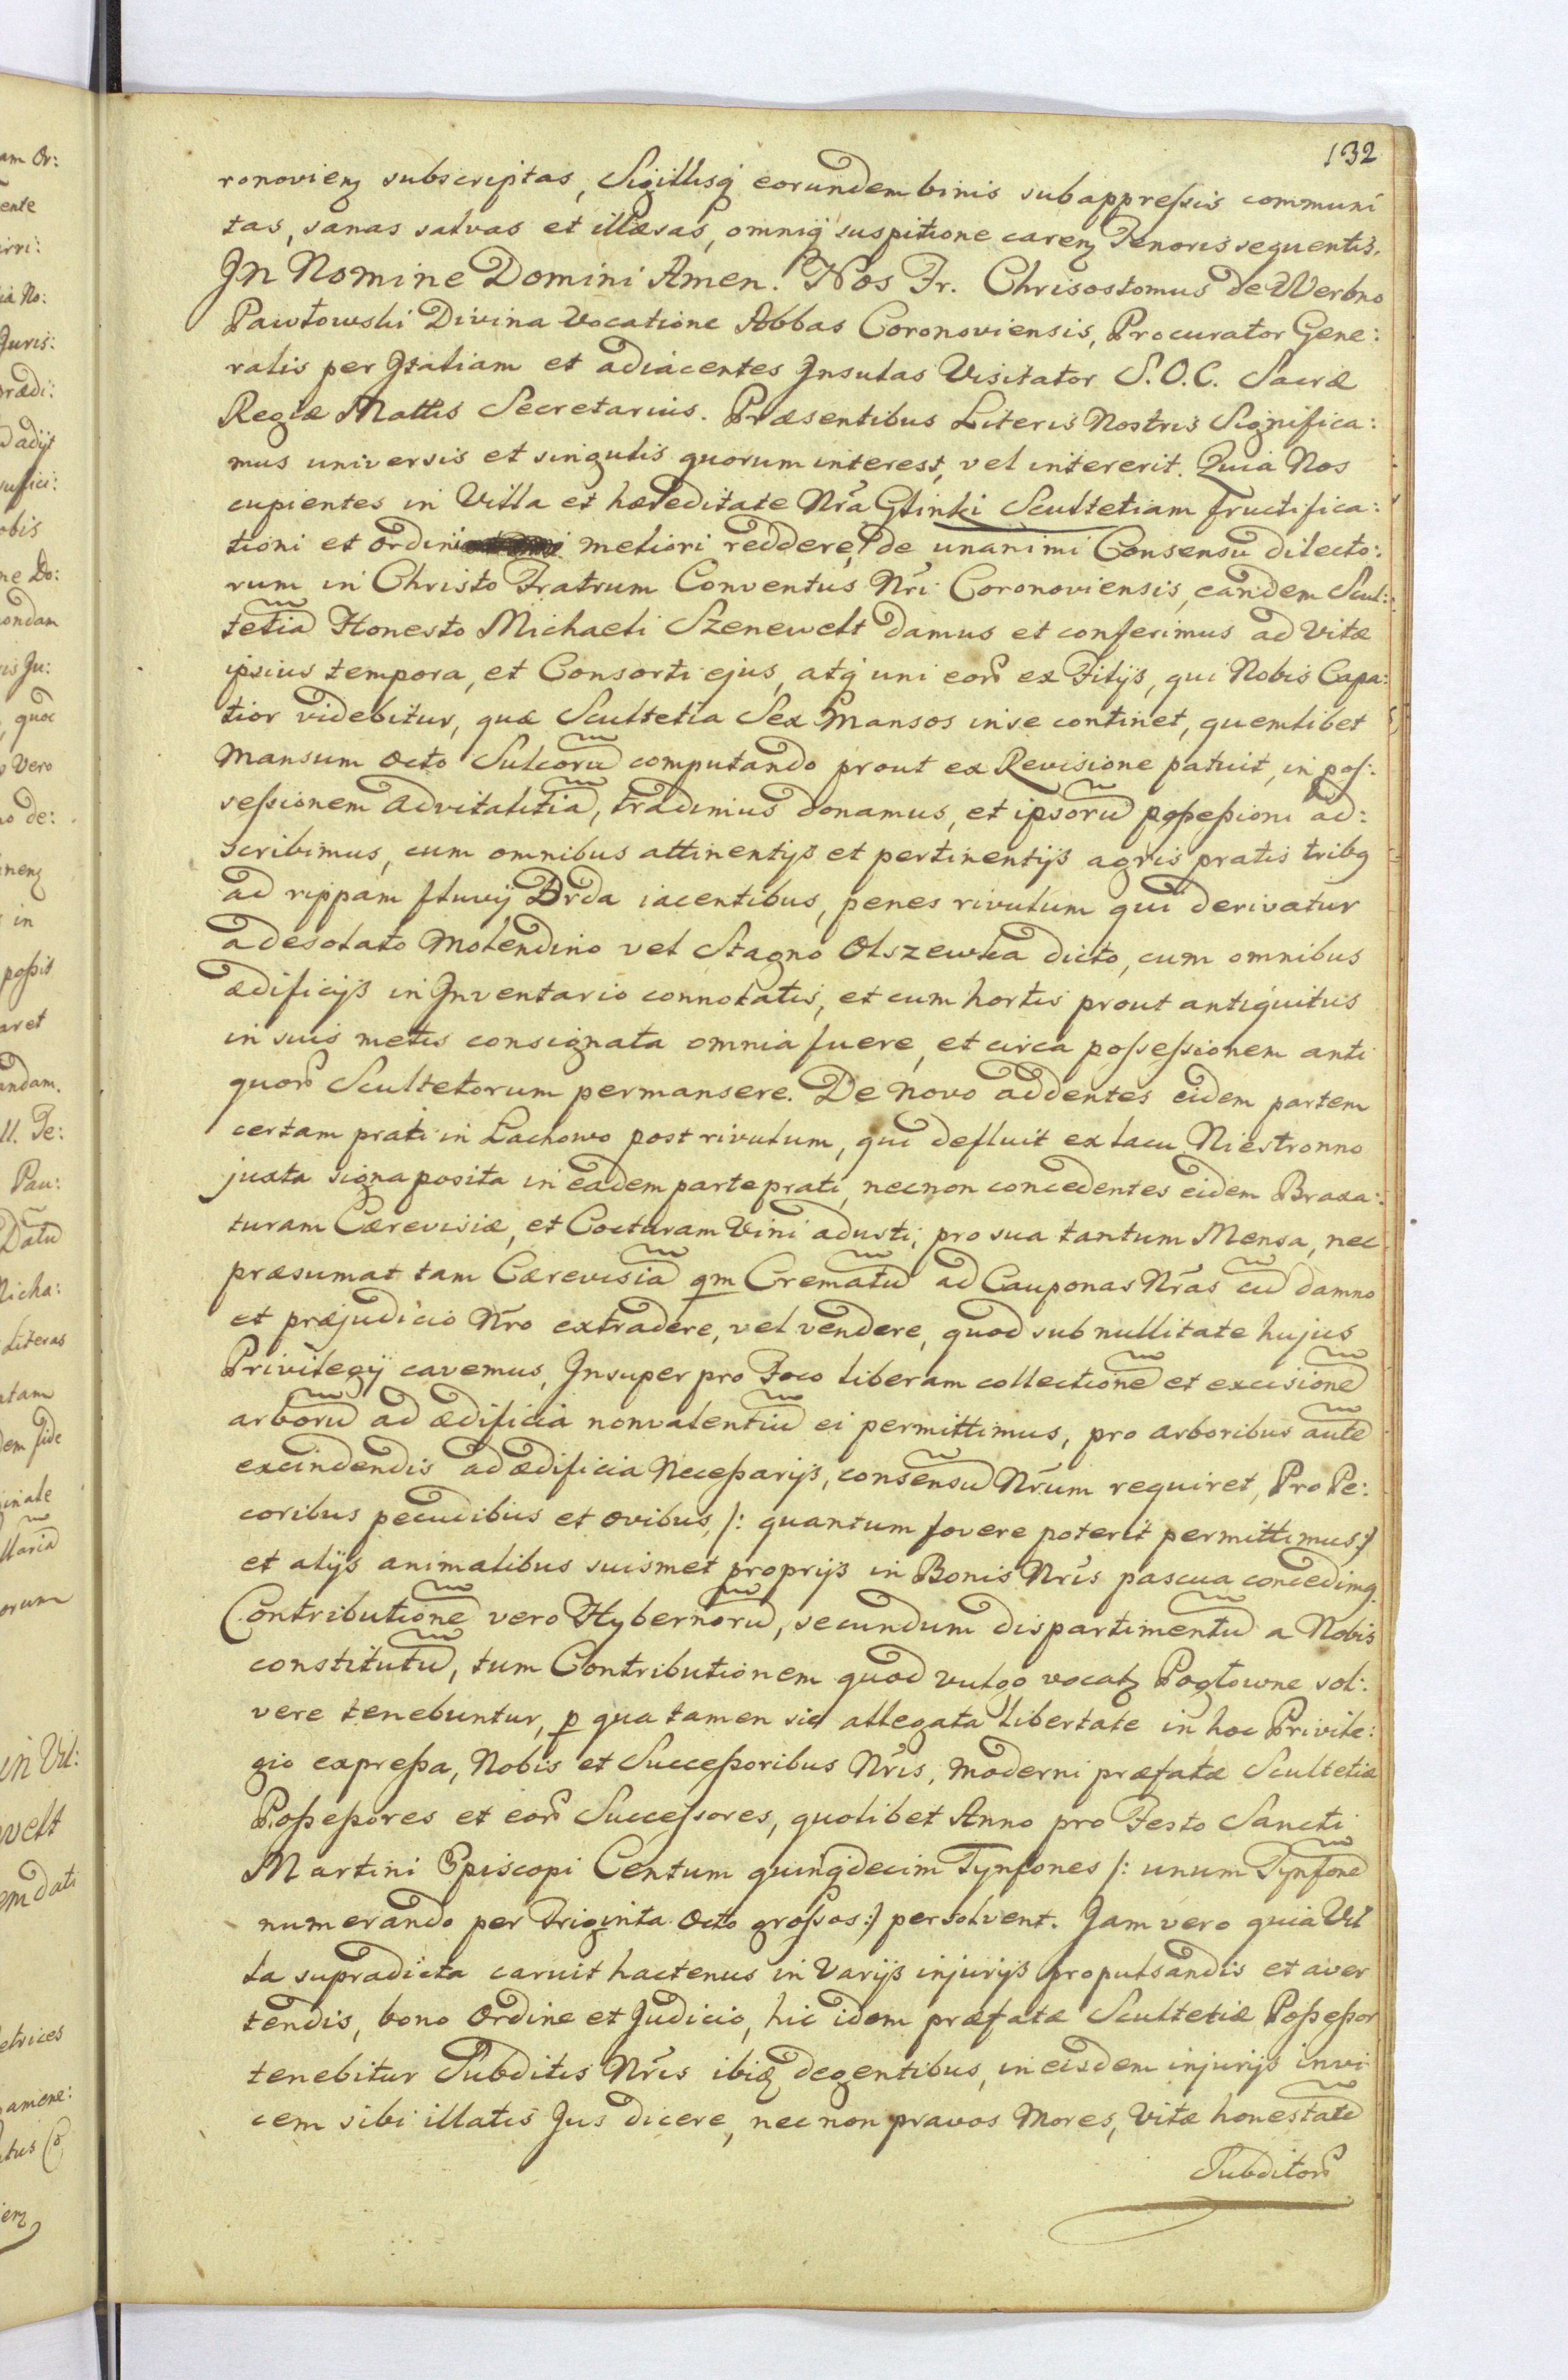 132
ronovien subscriptas, Sigillisq eorundem binis subappressis communi
tas, sanas salvas et illæsas, omniq suspitione caren Tenoris sequentis.
In Nomine Domini Amen. Nos Fr. Chrisostomus de Werbno
Pawłowski Divina Vocatione Abbas Coronoviensis, Procurator Gene:
ralis per Italiam et adiacentes Insulas Visitator S.O.C. Sacræ
Regiæ Mattis Secretarius. Præsentibus Literis Nostris Significa:
mus universis et singulis quorum interest, vel intererit. Quia Nos
cupientes in Villa et hæreditate Nrã Glinki Scultetiam fructifica:
tioni et ordini meliori reddere, de unanimi Consensu dilecto:
rum in Christo Fratrum Conventus Nri Coronoviensis, eandem Scul:
tetiã Honesto Michaeli Szenewelt damus et conferimus ad Vitæ
ipsius tempora, et Consorti ejus, atq uni eorũ ex Filijs, qui Nobis Capa:
tior videbitur, quæ Scultetia Sex Mansos in se continet, quemlibet
Mansum octo Sulcorũ computando prout ex Revisione patuit, in pos:
sessionem advitalitiã, tradimus donamus, et ipsorũ possessioni ad:
scribimus, cum omnibus attinentijs et pertinentijs agris pratis tribq
ad rippam fluvij Brda iacentibus, penes rivulum qui derivatur
a desolato Molendino vel Stagno Olszewka dicto, cum omnibus
ædificijs in Inventario connotatis, et cum hortis prout antiquitus
in suis metis consignata omnia fuere, et circa possessionem anti
quorũ Scultetorum permansere. De novo addentes eidem partem
certam prati in Lachowo post rivulum, qui defluit ex lacu Niestronno
juxta signa posita in eadem parte prati, necnon concedentes eidem Braxa:
turam Cærevisiæ, et Cocturam Vini adusti, pro sua tantum Mensa, nec
præsumat tam Cærevisiã qm Crematũ ad Cauponas Nrãs cũ damno
et præjudicio Nrõ extradere, vel vendere, quod sub nullitate hujus
Privilegij cavemus, Insuper pro Foco liberam collectionẽ et excisionẽ
arborũ ad ædificia nonvalentiũ ei permittimus, pro arboribus autẽ
excindendis ad ædificia Necessarijs, consensũ Nrũm requiret, Pro Pe:
coribus pecudibus et ovibus, /: quantum fovere poterit permittimus:/
et alijs animalibus suismet proprijs in Bonis Nrĩs pascua concedimq.
Contributionẽ vero Hybernorũ, secundum dispartimentũ a Nobis
constitutũ, tum Contributionem quod vulgo vocatz Pogłowne sol:
vere tenebuntur, p qua tamen sic allegata libertate in hoc Privile:
gio expressa, Nobis et Successoribus Nrĩs, moderni præfatæ Scultetiæ
Possessores et eorũ Successores, quolibet Anno pro Festo Sancti
Martini Episcopi Centum quinqdecim Tynfones /: unum Tynfonẽ
numerando per Triginta octo grossos:/ persolvent. Jam vero quia Vil
la supradicta caruit hactenus in Varijs injurijs propulsandis et aver
tendis, bono ordine et Judicio, hic idem præfatæ Scultetiæ Possessor
tenebitur Subditis Nrĩs ibiq degentibus, in eisdem injurijs invi
cem sibi illatis Jus dicere, nec non pravos Mores, Vitæ honestatẽ
Subditorũ